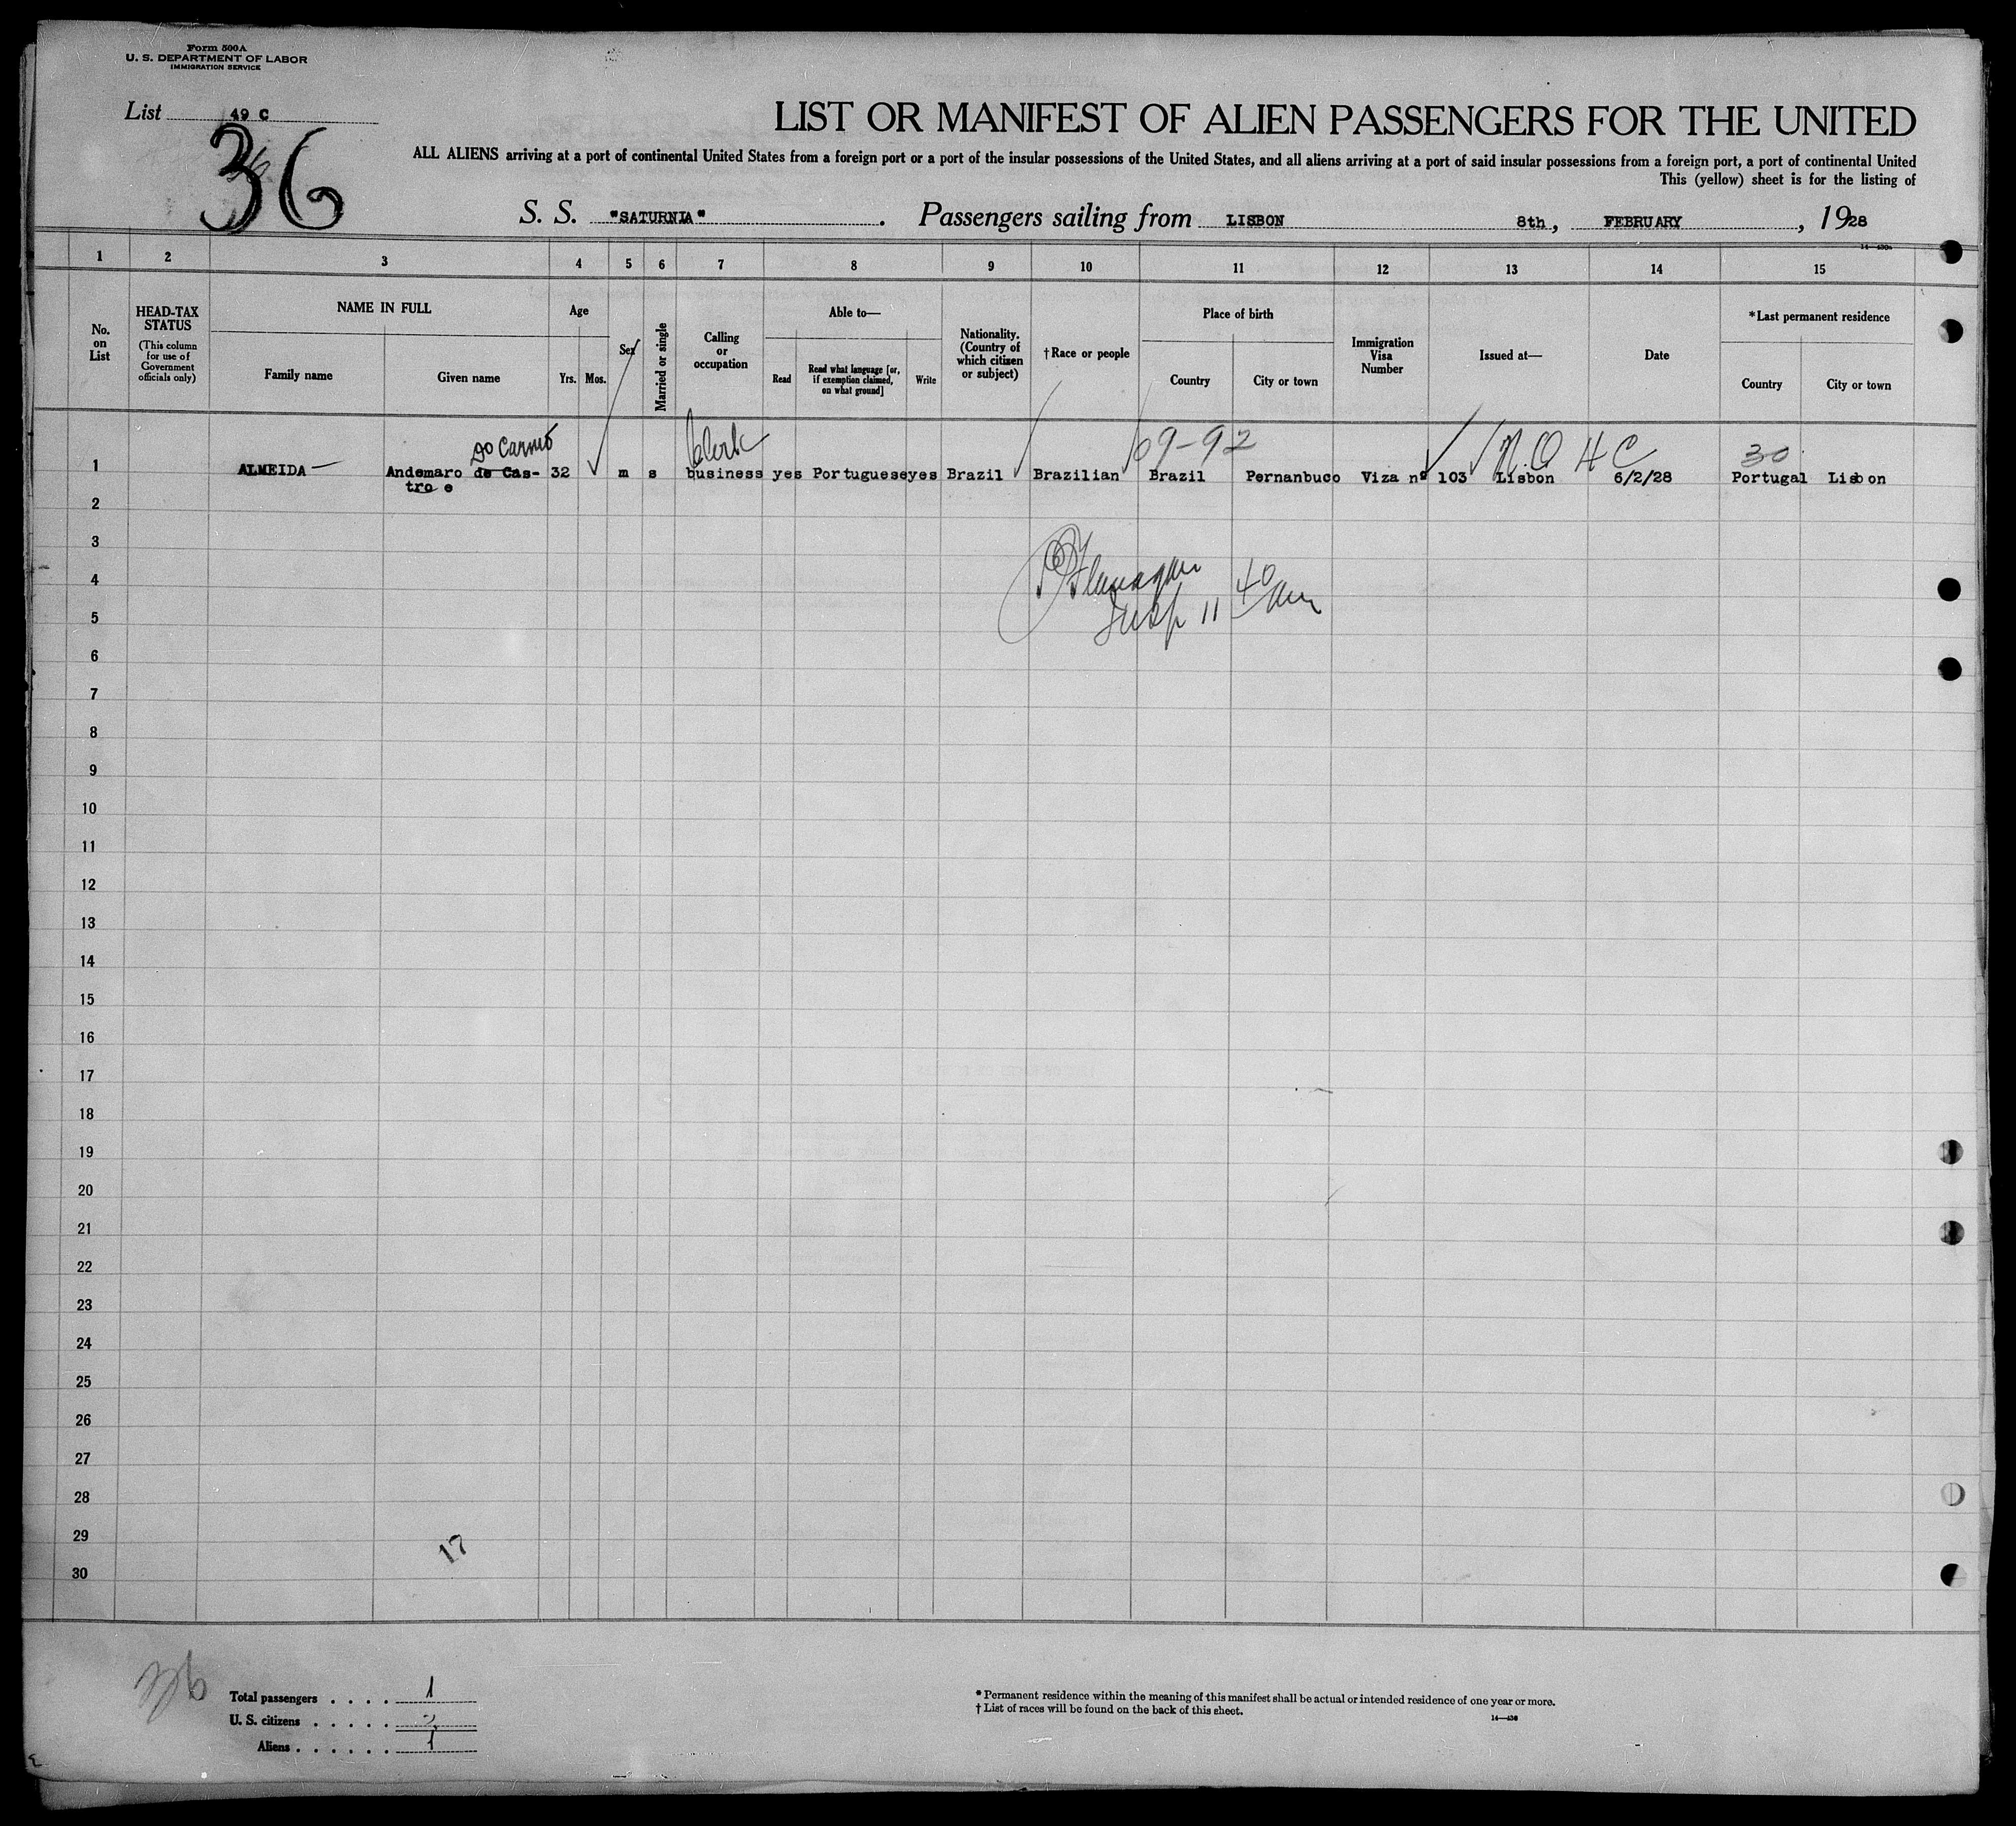 Form 500A
U. S. DEPARTMENT OF LABOR
IMMIGRATION SERVICE
List 49 C
36
LIST OR MANIFEST OF ALIEN PASSENGERS FOR THE UNITED
ALL ALIENS arriving at a port of continental United States from a foreign port or a port of the insular possessions of the United States, and all aliens arriving at a port of said insular possessions from a foreign port, a port of continental United
This (yellow) sheet is for the listing of
S. S. "SATURNIA". Passengers sailing from LISBON 8th, FEBRUARY, 1928
1 2 3 4 5 6 7 8 9 10 11 12 13 14 15
No. on List
HEAD-TAX STATUS
(This column for use of Government officials only)
NAME IN FULL
Family name Given name
Age
Yrs. Mos.
Sex
Married or single
Calling or occupation
Able to—
Read Read what language [or, if exemption claimed, on what ground] Write
Nationality. (Country of which citizen or subject)
†Race or people
Place of birth
Country City or town
Immigration Visa Number
Issued at—
Date
*Last permanent residence
Country City or town
do Carmo Clerk 09-92 N.Q H C 30
1 ALMEIDA Andemaro de Cas- 32 m s business yes Portuguese yes Brazil Brazilian Brazil Pernanbuco Viza nº 103 Lisbon 6/2/28 Portugal Lisbon
tro e
2
3
Flanagan
4
Insp 11 40 am
5
6
7
8
9
10
11
12
13
14
15
16
17
18
19
20
21
22
23
24
25
26
27
28
29
17
30
36
Total passengers . . . . 1
U. S. citizens . . . . .
Aliens . . . . . . 1
* Permanent residence within the meaning of this manifest shall be actual or intended residence of one year or more.
† List of races will be found on the back of this sheet.
14—430